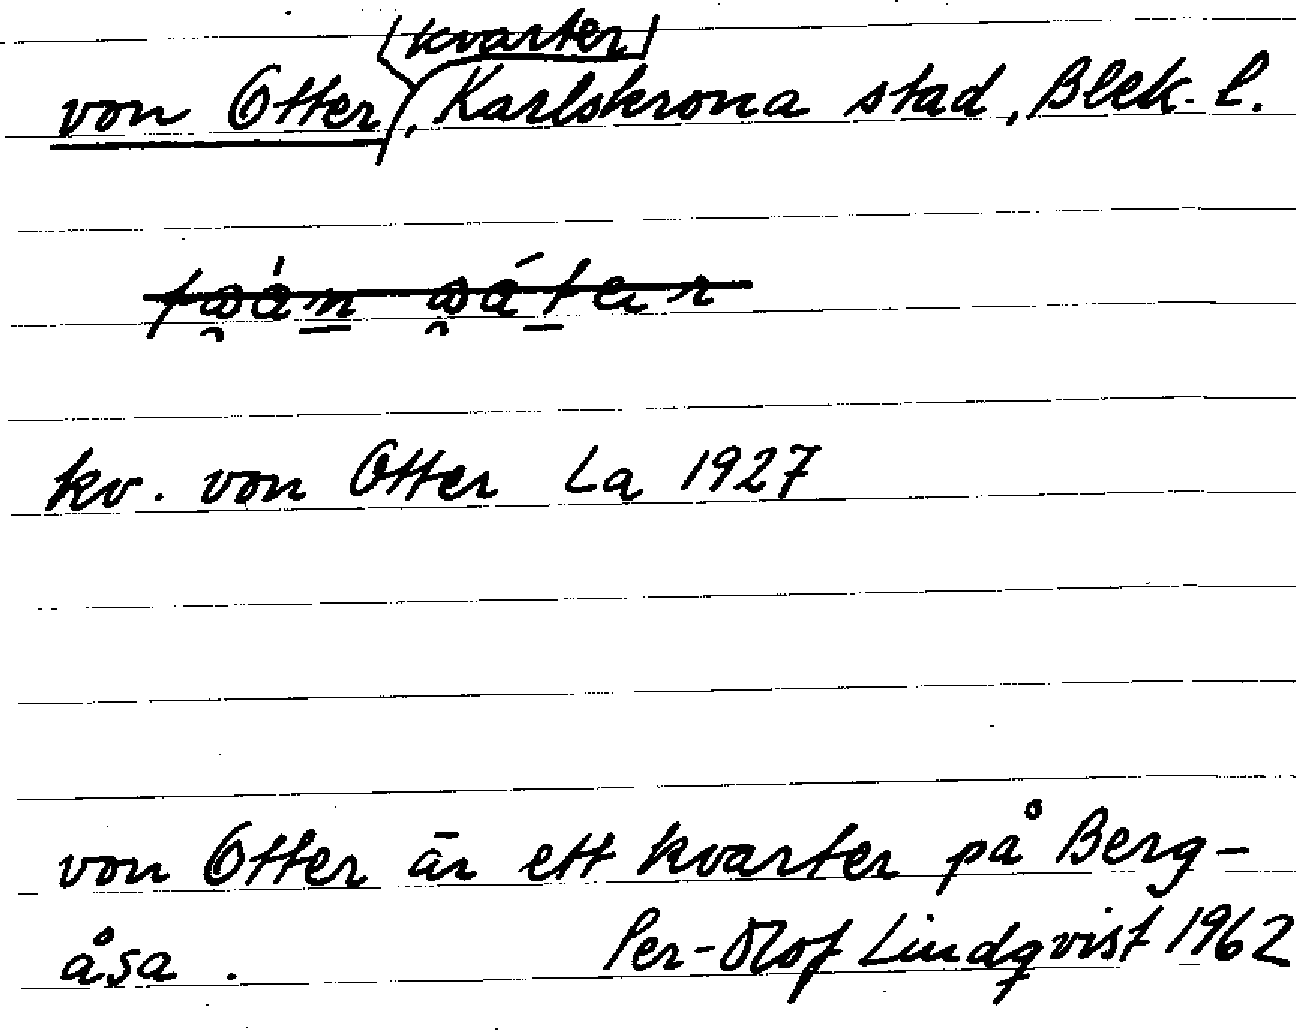 kvarter
von Otter, Karlskrona stad, Blek. l.
kv. von Otter La 1927
von Otter är ett kvarter på Berg-
åsa. Per-Olof Lindqvist 1962